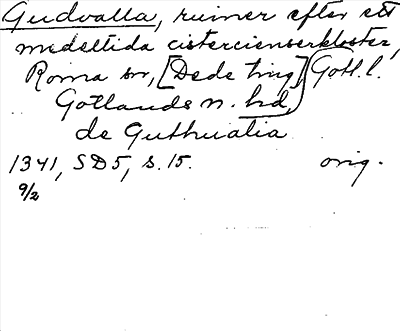 Gudvalla, ruiner efter ett
medeltida cistercienserkloster,
Roma sn, [Dede ting], Gotl. l.
Gotlands n. hd,
de Guthualia
1341, SD5, s. 15. orig.
9/2